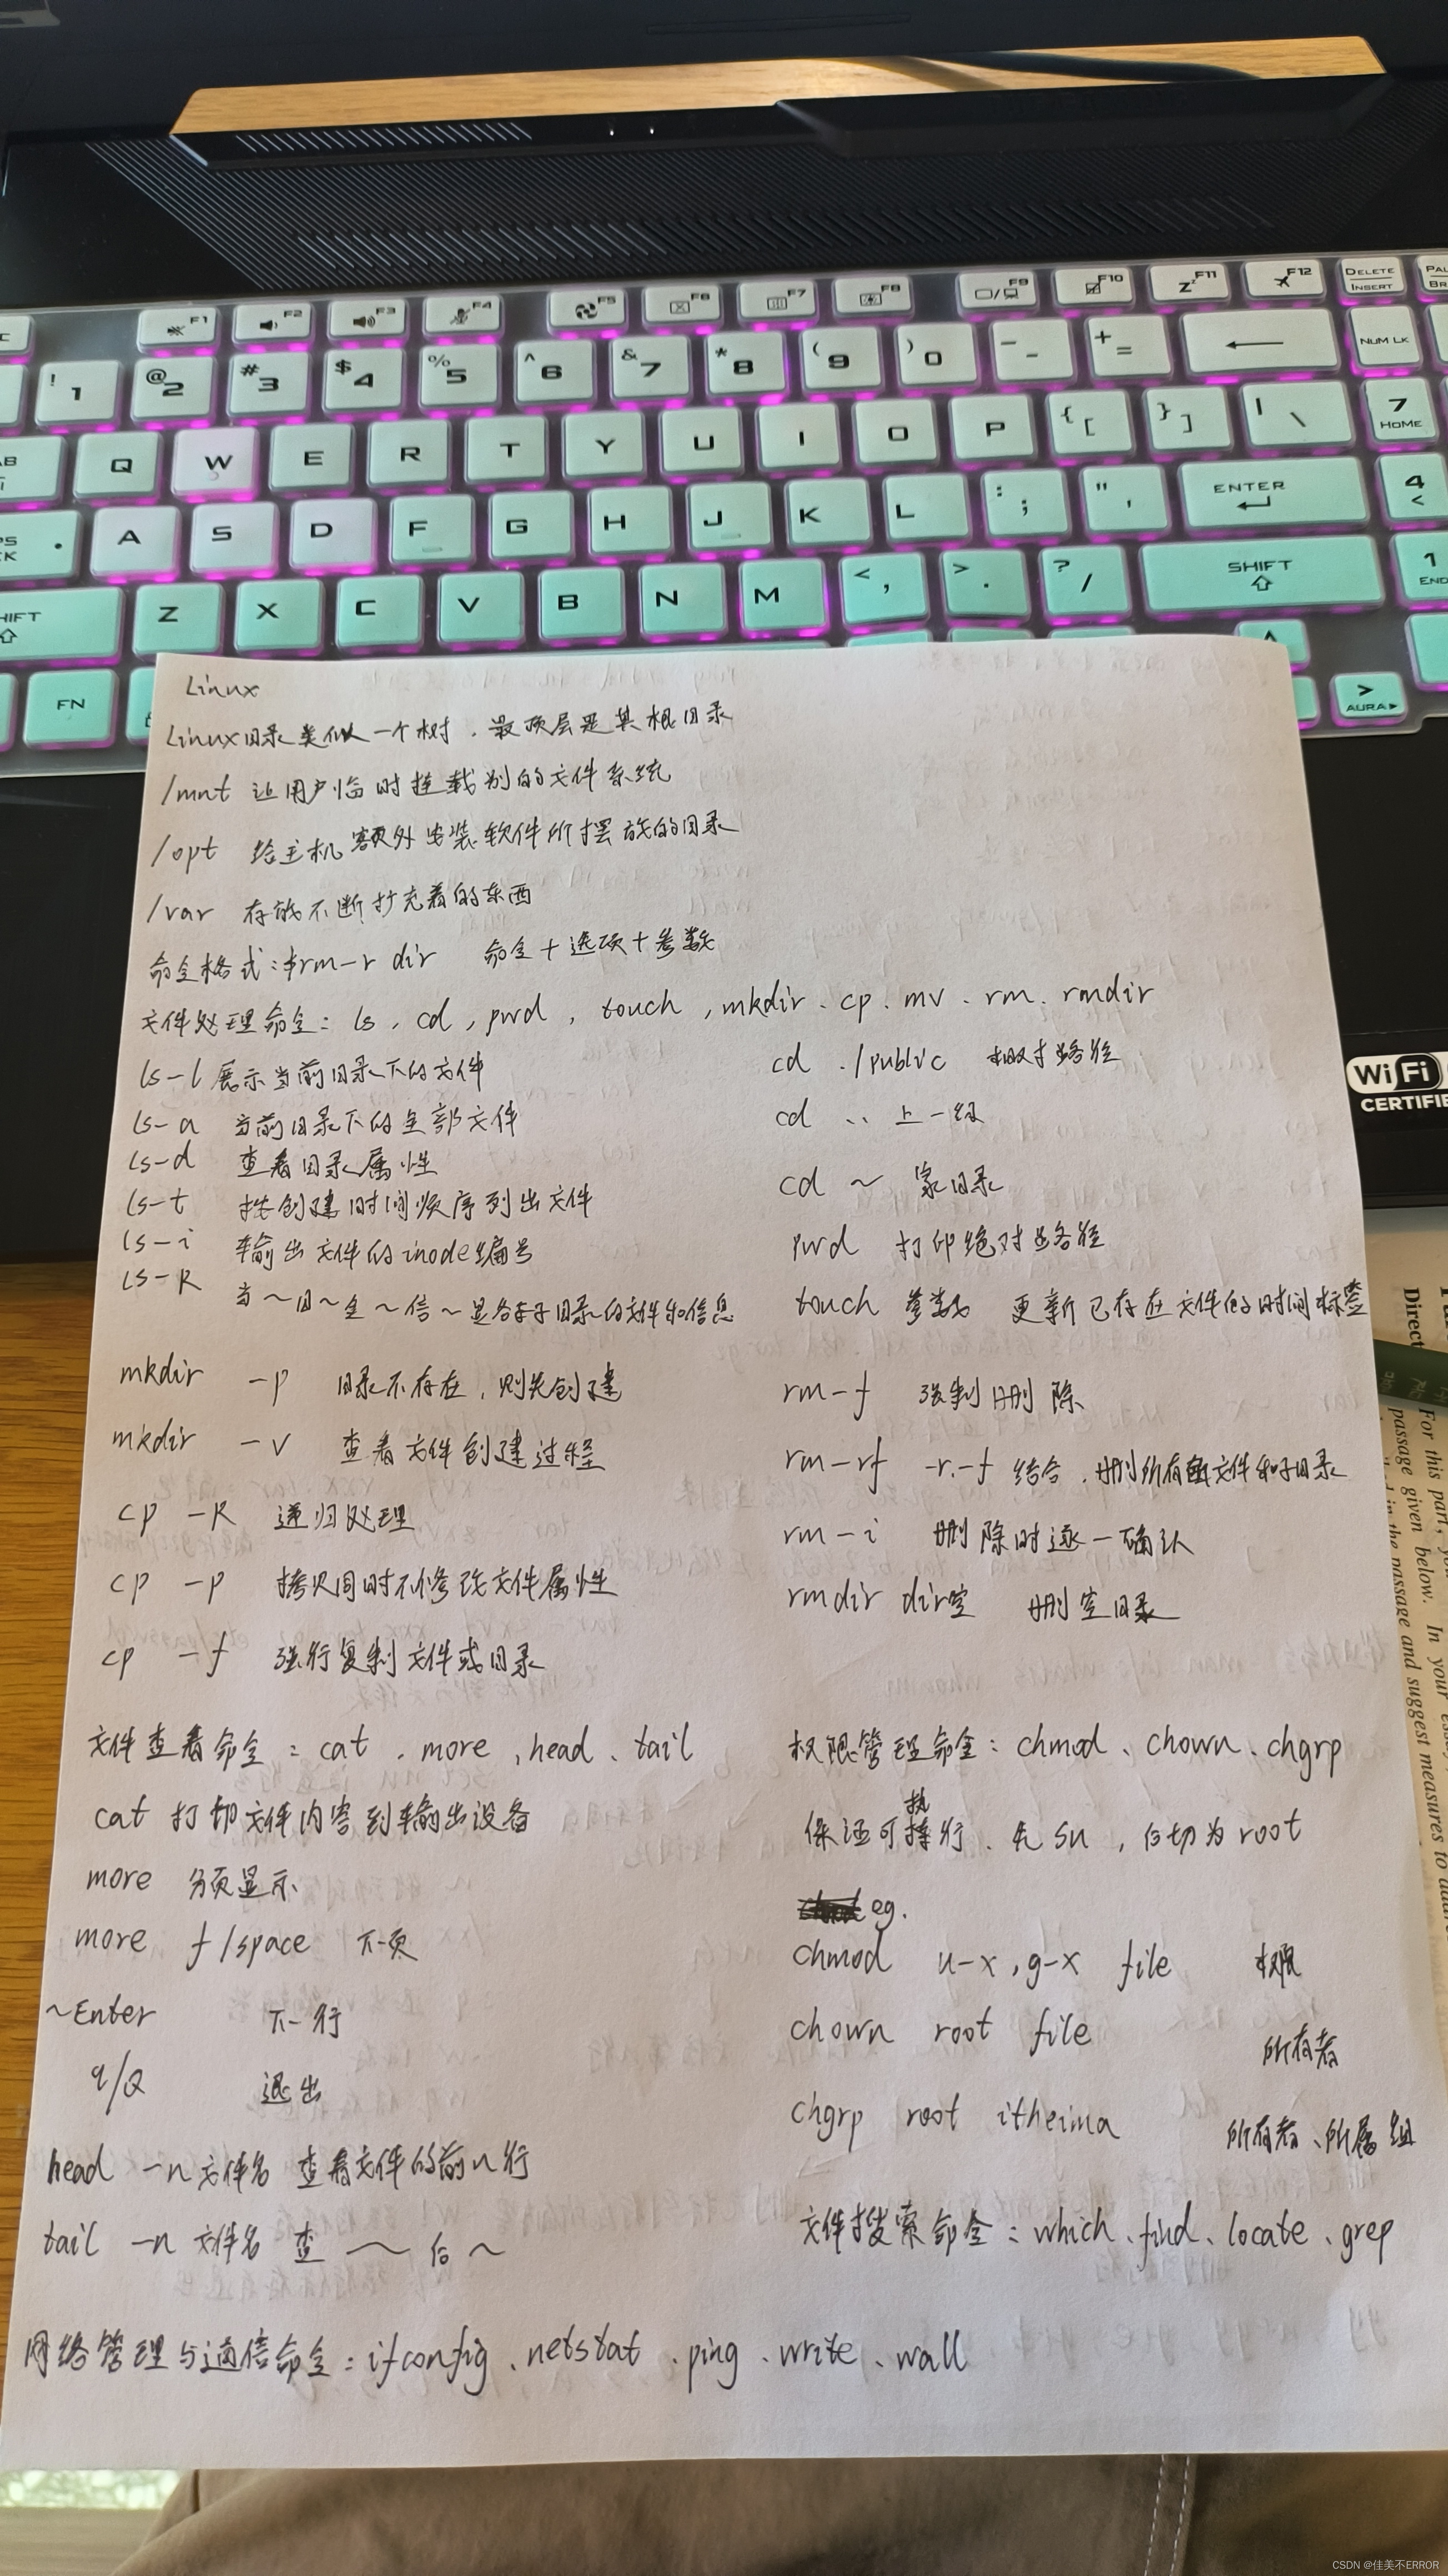 F1 F2 F3 F4 F5 F6 F7 F8 F9 F10 F11 F12 DELETE INSERT
! 1 @ 2 # 3 $ 4 % 5 ^ 6 & 7 * 8 ( 9 ) 0 _ - + = NUM LK
Q W E R T Y U I O P { [ } ] | \ 7 HOME
A S D F G H J K L : ; " ' ENTER 4 <
Z X C V B N M < , > . ? / SHIFT 1 END
FN > AURA
Wi Fi
CERTIFIE
Linux
Linux目录类似一个树.最顶层是其根目录
/mnt 让用户临时挂载别的文件系统
/opt 给主机额外安装软件所摆放的目录
/var 存放不断扩充着的东西
命令格式:#rm-r dir 命令+选项+参数
文件处理命令: ls, cd, pwd, touch, mkdir、cp、mv、rm、rmdir
ls-l 展示当前目录下的文件
ls-a 当前目录下的全部文件
ls-d 查看目录属性
ls-t 按创建时间顺序列出文件
ls-i 输出文件的inode编号
ls-R 当~目~全~信~显各子目录的文件和信息
cd ./public 相对路径
cd .. 上一级
cd ~ 家目录
pwd 打印绝对路径
touch 参数 更新已存在文件的时间标签
mkdir -p 目录不存在,则先创建
mkdir -v 查看文件创建过程
cp -R 递归处理
cp -p 拷贝同时不修改文件属性
cp -f 强行复制文件或目录
rm-f 强制删除
rm-rf -r.-f 结合.删所有文件和子目录
rm-i 删除时逐一确认
rmdir dir空 删空目录
文件查看命令:cat、more、head、tail
cat 打切文件内容到输出设备
more 分页显示
more f/space 下一页
~Enter 下一行
q/Q 退出
head -n 文件名 查看文件的前n行
tail -n 文件名 查~后~
权限管理命令:chmod、chown、chgrp
保证可执行、先su,后切为root
eg.
chmod u-x,g-x file 权限
chown root file 所有者
chgrp root itheima 所有者、所属组
文件搜索命令:which、find、locate、grep
网络管理与通信命令:ifconfig、netstat、ping、write、wall
Direct
For this part, yo
passage given below. In your essay
in the passage and suggest measures to
CSDN @佳美不ERROR